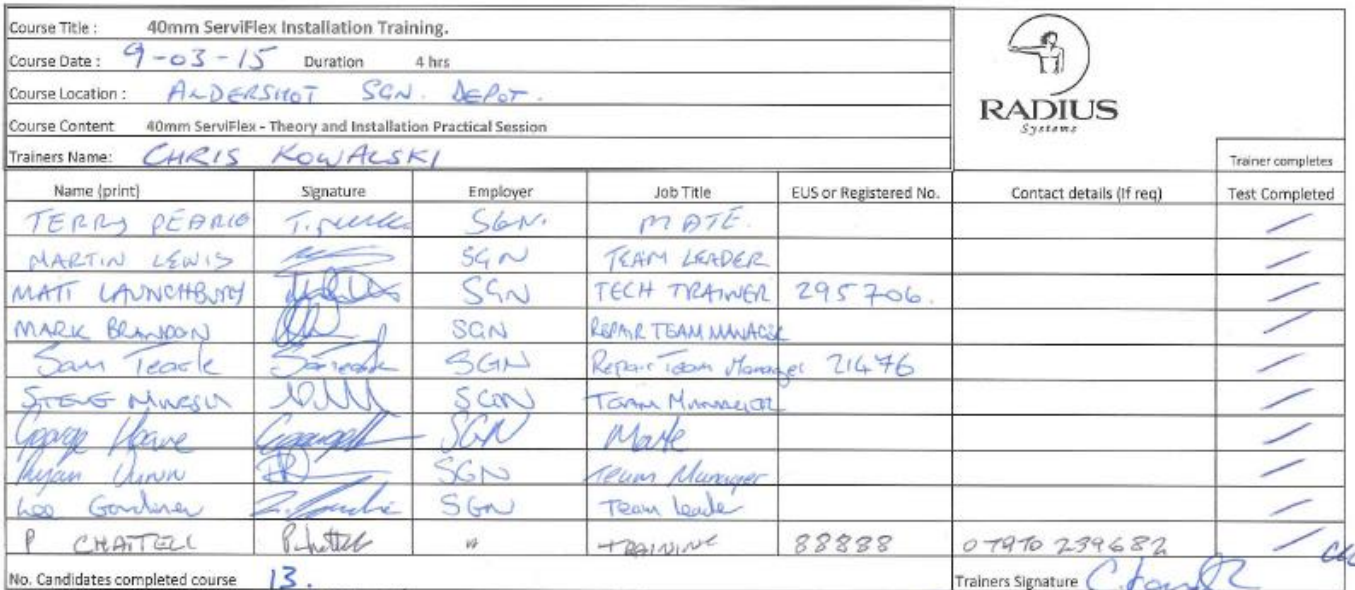 Course Title : 40mm ServiFlex Installation Training.
Course Date : 9-03-15 Duration 4 hrs
Course Location : ALDERSHOT SGN. DEPOT.
RADIUS
Systems
Course Content 40mm ServiFlex - Theory and Installation Practical Session
Trainers Name: CHRIS KOWALSKI
Trainer completes
Name (print) Signature Employer Job Title EUS or Registered No. Contact details (If req) Test Completed
TERRY SGN. MATE.
MARTIN LEWIS SGN TEAM LEADER
MATT LAUNCHBURY SGN TECH TRAINER 295706.
MARK BRANDON SGN REPAIR TEAM MANAGER
Sam Teack SGN Repair Team Manager 21476
STEVE SGN TEAM MANAGER
George Hoare SGN Mate
Ryan SGN Team Manager
Lee Gardiner SGN Team leader
P CHATTELL " TRAINING 88888 07970 239682
No. Candidates completed course 13.
Trainers Signature